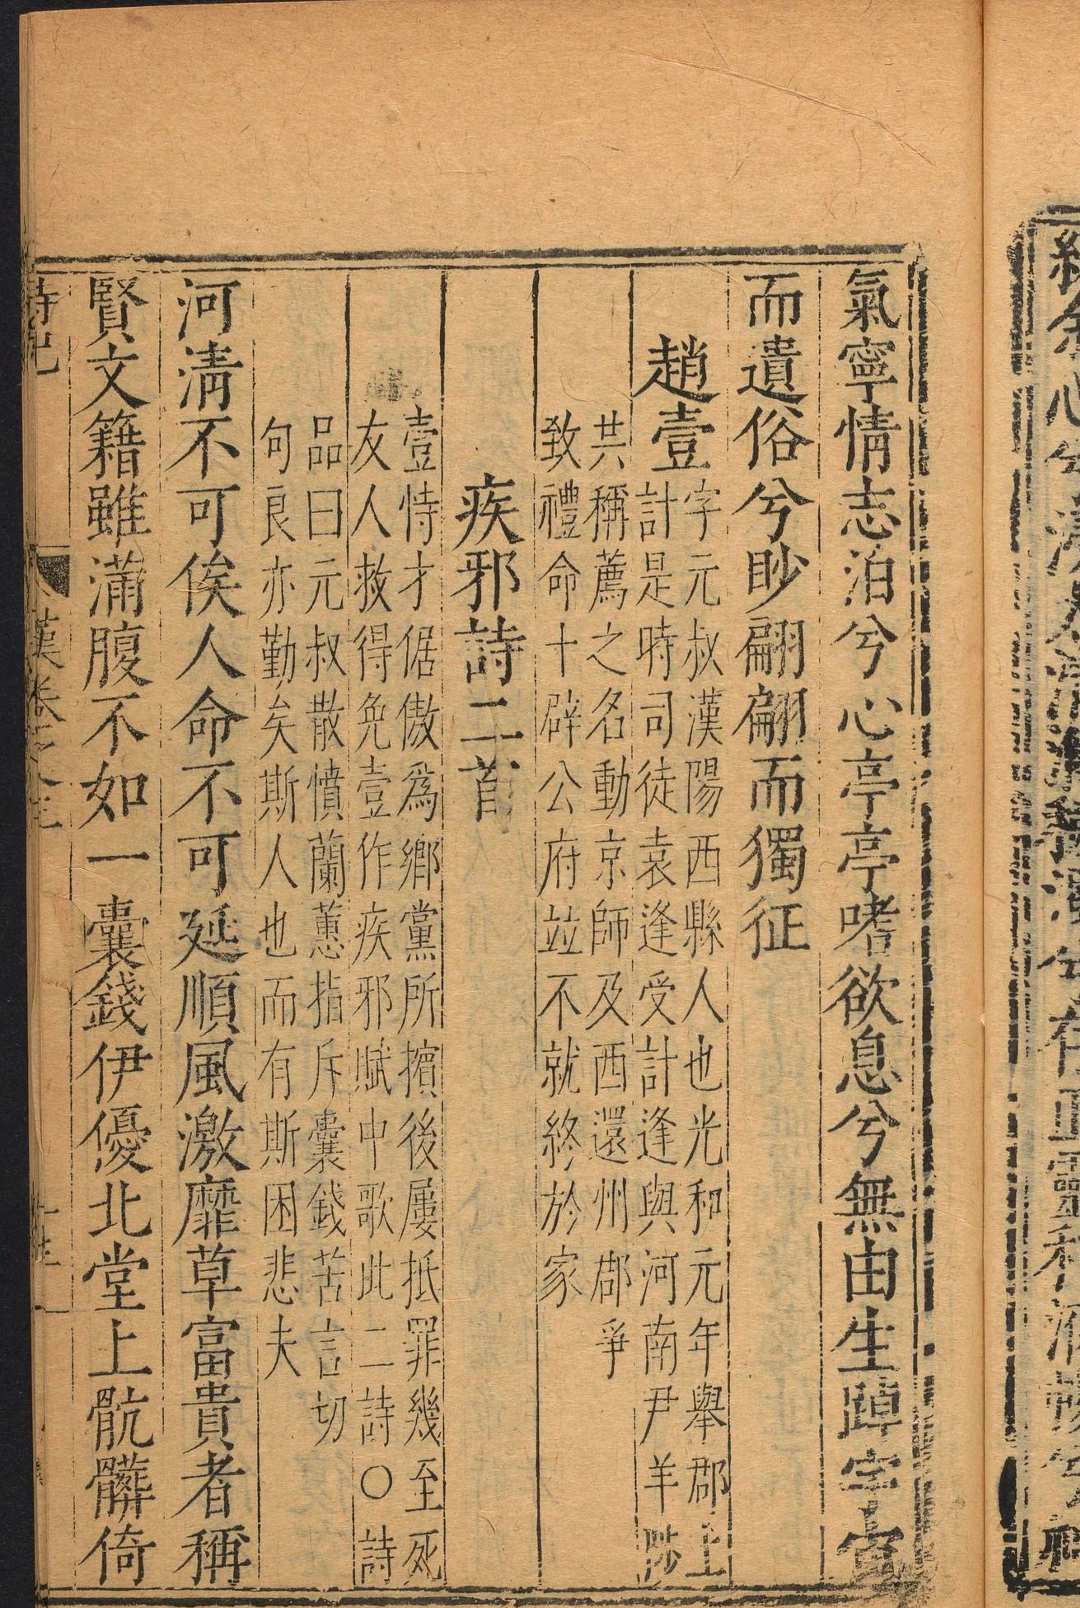 氣寧情志泊兮心亭亭嗜欲息兮無由生踔宇宙
而遺俗兮眇翩翩而獨征
趙壹
字元叔漢陽西縣人也光和元年舉郡上
計是時司徒袁逢受計逢與河南尹羊陟
共稱薦之名動京師及西還州郡爭
致禮命十辟公府並不就終於家
疾邪詩二首
壹恃才倨傲爲鄉黨所擯後屢抵罪幾至死
友人救得免壹作疾邪賦中歌此二詩○詩
品曰元叔散憤蘭蕙指斥囊錢苦言切
句良亦勤矣斯人也而有斯困悲夫
河淸不可俟人命不可延順風激靡草富貴者稱
賢文籍雖滿腹不如一囊錢伊優北堂上骯髒倚
詩紀
漢卷之